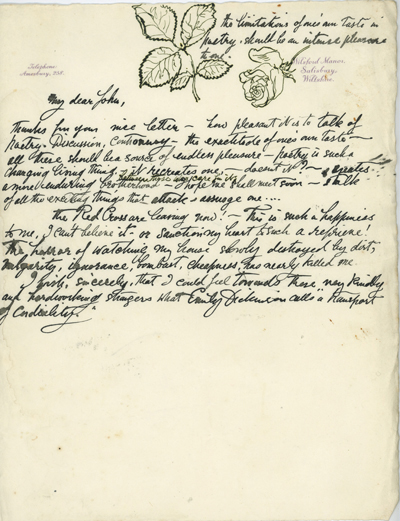 the limitations of one's own taste in
Poetry, should be an intense pleasure
to one.
Telephone
Amesbury, 258.
Wilsford Manor,
Salisbury,
Wiltshire.
My dear John,
Thanks for your nice letter — how pleasant it is to talk of
Poetry. Discussion, Controversy — the exactitude of one's own taste —
all these should be a source of endless pleasure — Poetry is such a
changing living thing, it recreates one, — doesn't it? — & creates
a never enduring brotherhood between those who care for it. I hope we shall meet soon — & talk
of all the exciting things that attack & assuage one ...
The Red Cross are leaving now! — This is such a happiness
to me, I can't believe it — or sanction my heart to such a reprieve!
The horror of watching my house slowly destroyed by dirt,
vulgarity, ignorance, bombast, cheapness, has nearly killed me.
I wish, sincerely, that I could feel towards these very kindly
and hardworking strangers what Emily Dickinson calls a "transport
of Cordiality."